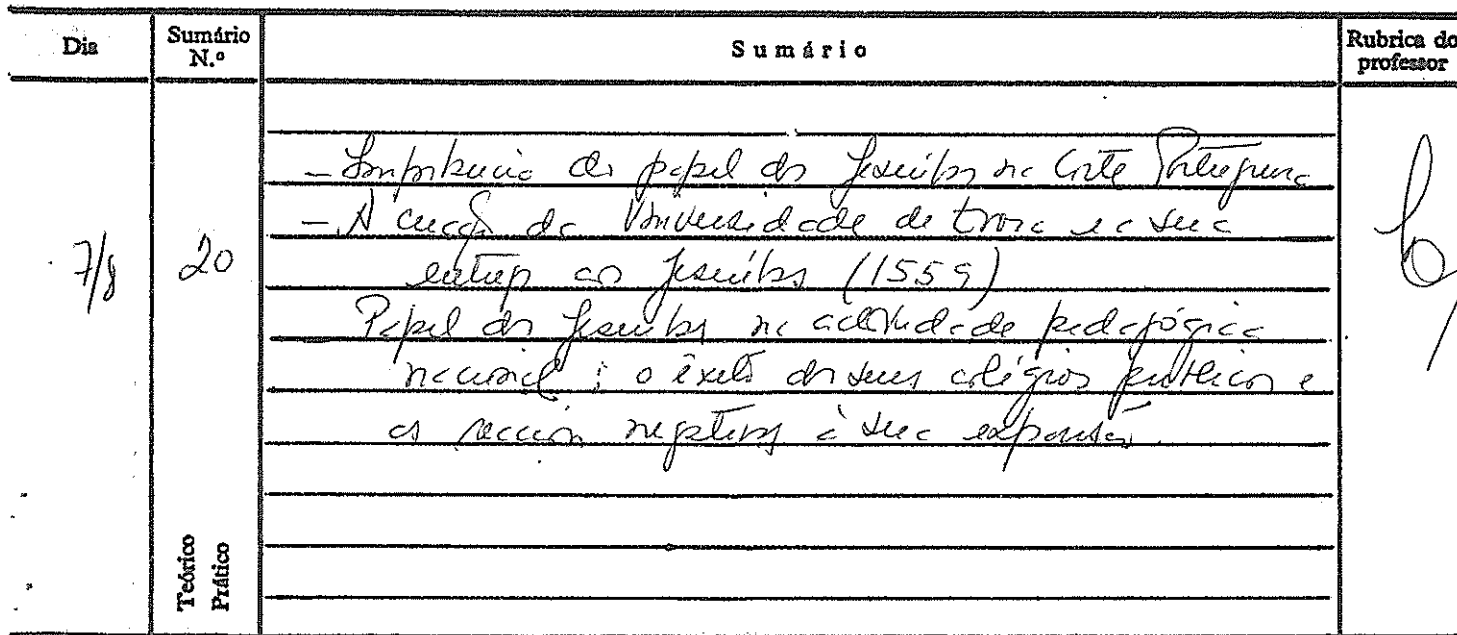 Dia Sumário N.º Sumário Rubrica do professor
- Importancia do papel dos Jesuítas na Corte Portuguesa
- A criação da Universidade de Evora e a sua
7/8 20 entrega aos Jesuítas (1559)
Papel dos Jesuítas na actividade pedagógica
nacional; o êxito dos seus colégios públicos e
as reacções negativas à sua expansão.
Teórico
Prático